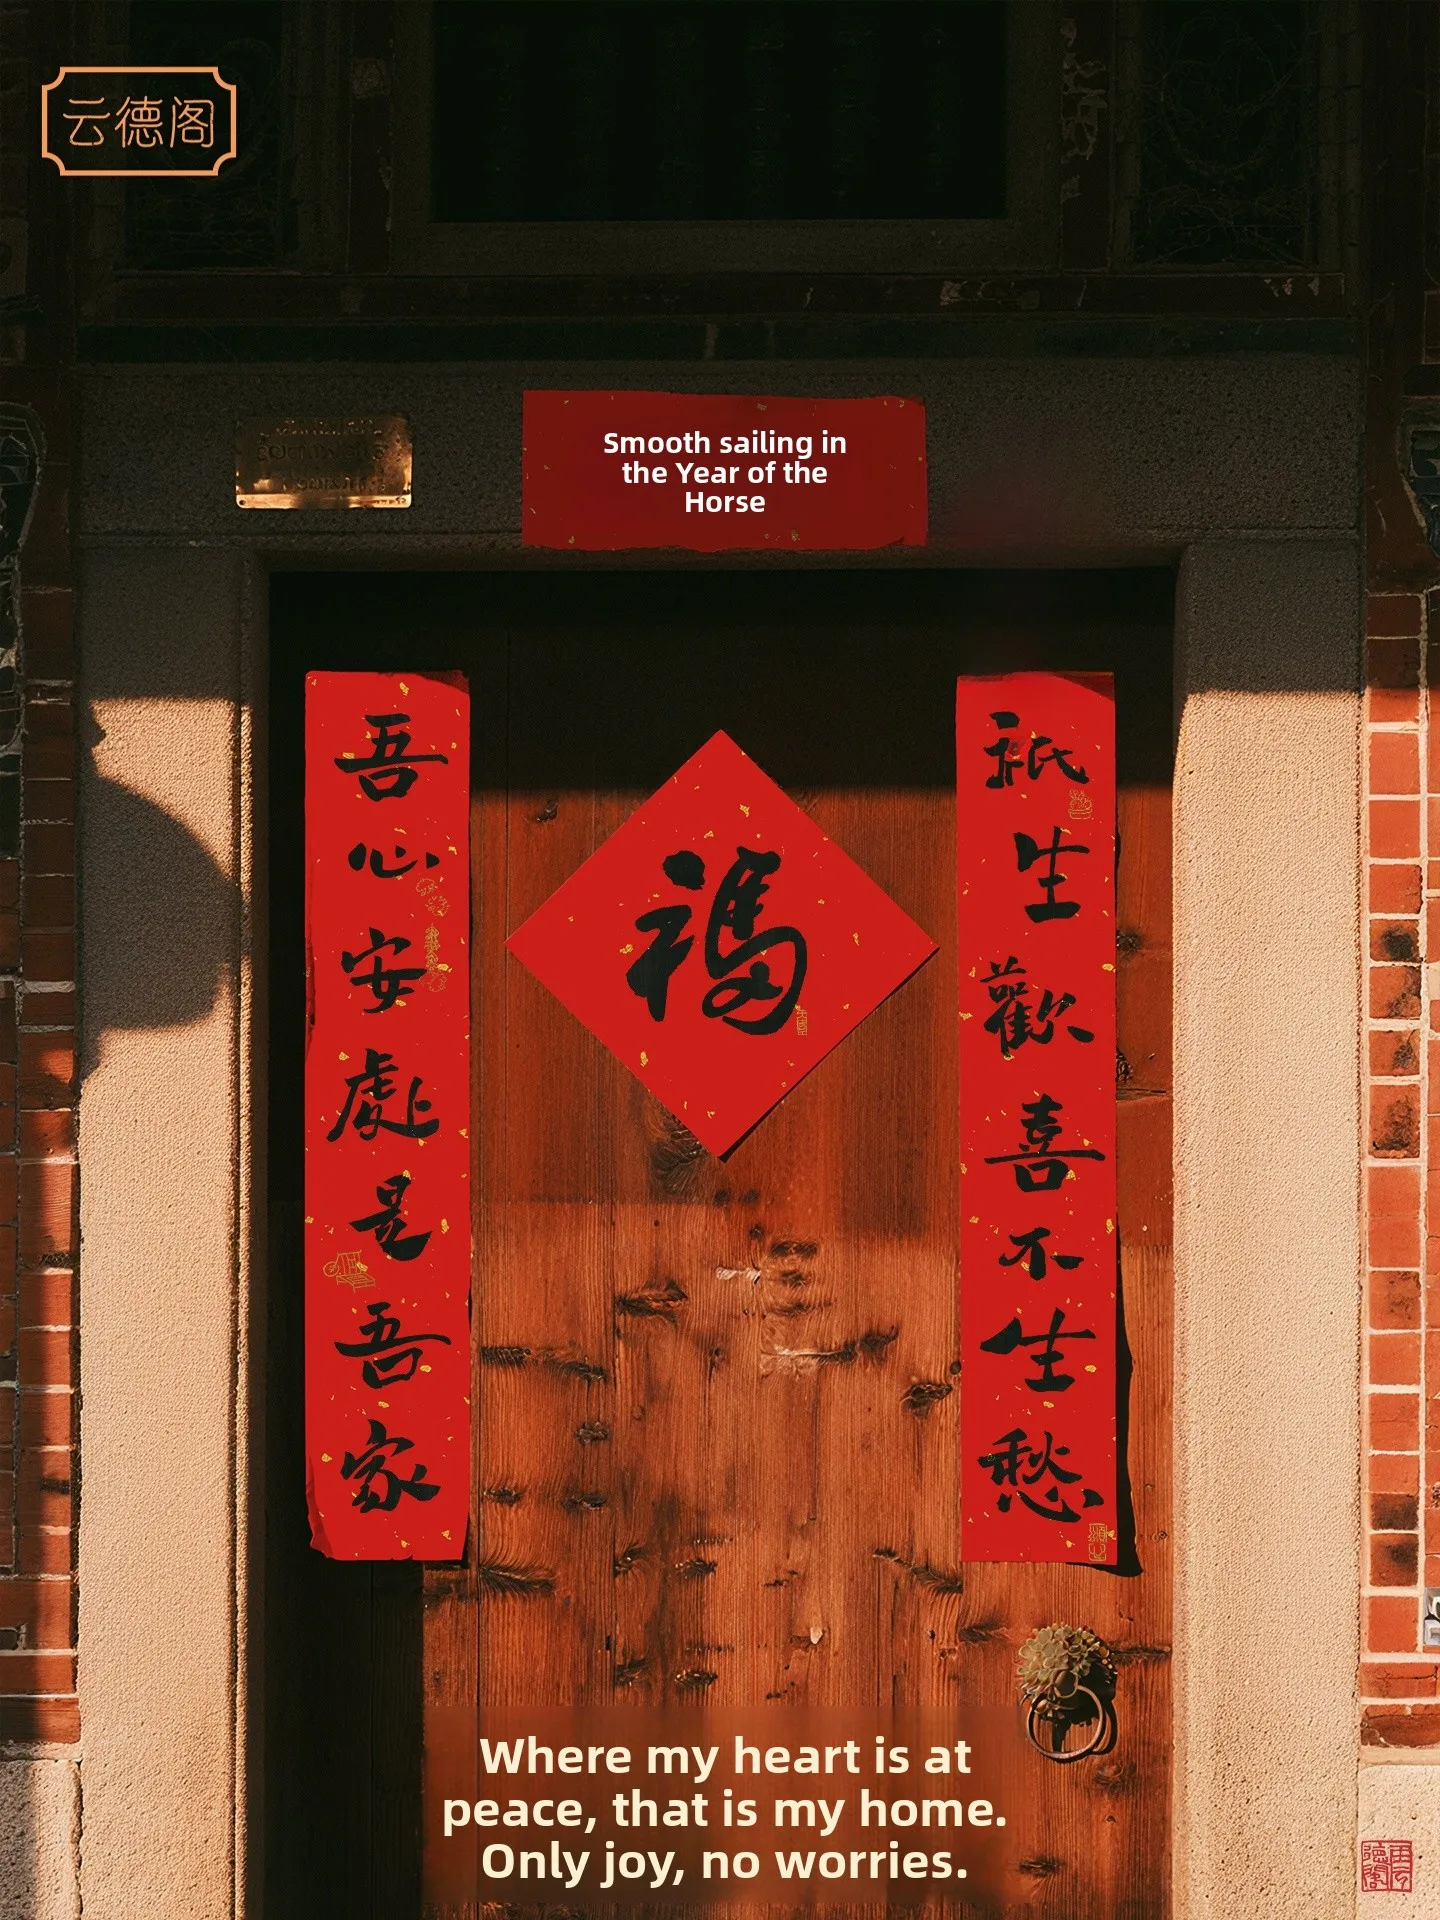 云德阁
Smooth sailing in
the Year of the
Horse
吾心安處是吾家
福
祇生歡喜不生愁
Where my heart is at
peace, that is my home.
Only joy, no worries.